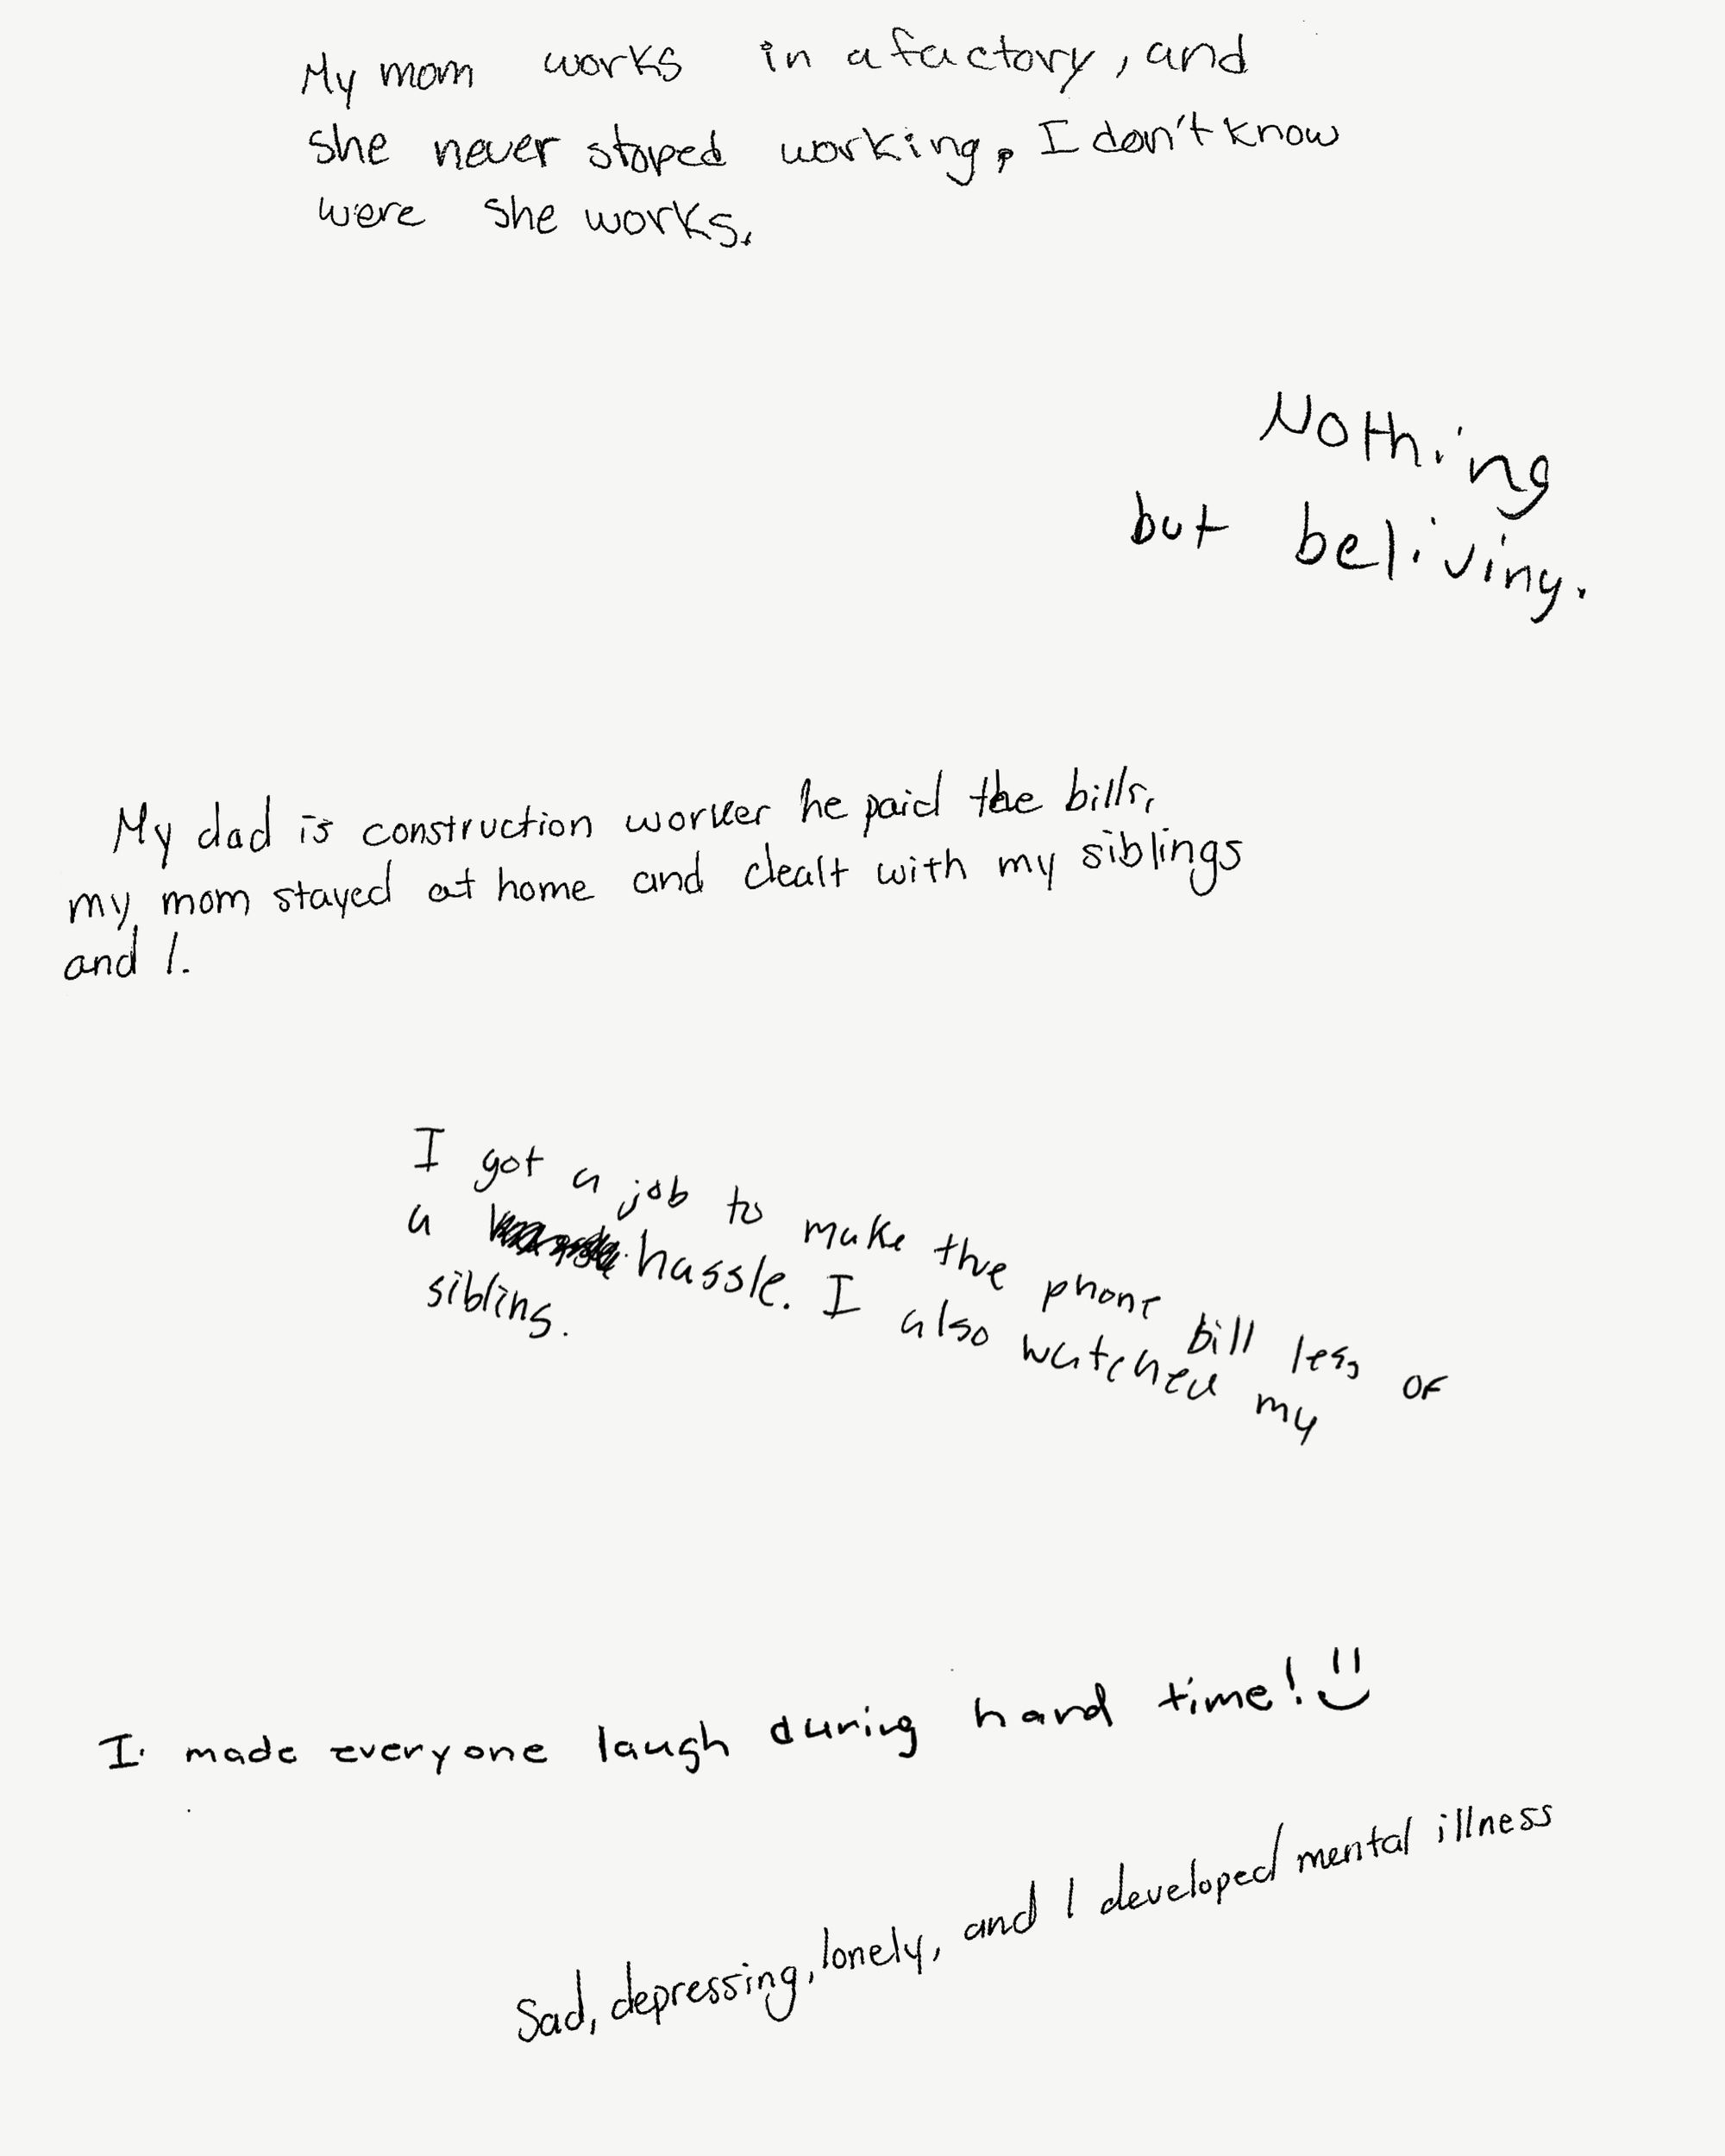 My mom works in a factory, and
she never stoped working, I don't know
were she works.
Nothing
but beliving.
My dad is construction worker he paid the bills,
my mom stayed at home and dealt with my siblings
and I.
I got a job to make the phone bill less of
a hassle. I also watched my
siblins.
I made everyone laugh during hard time!
Sad, depressing, lonely, and I developed mental illness